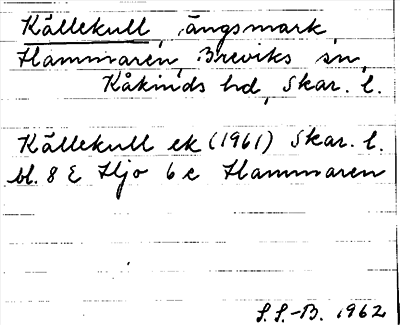 Källekull, ängsmark,
Hammaren, Breviks sn,
Kåkinds hd, Skar. l.
Källekull ek (1961) Skar. l.
bl. 8 E Hjo 6 e Hammaren
S.S.-B. 1962